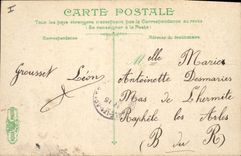 I
CARTE POSTALE
Tous les pays étrangers n'acceptent pas la Correspondance au recto
(Se renseigner à la Poste)
Correspondance
Adresse du destinataire
Melle Marie
Antoinette Desmaries
Grousset Léon
Mas de L'hermite
Raphèle les Arles
(B du R)